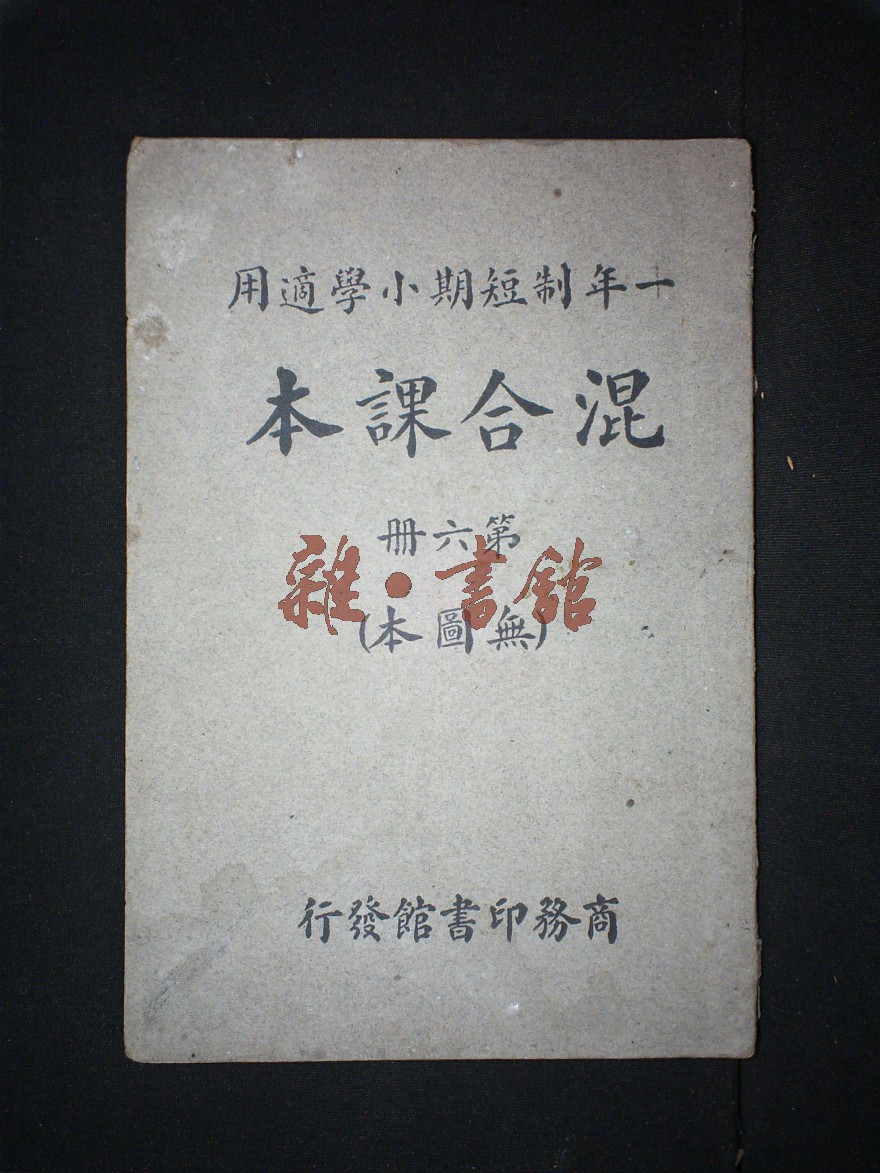 一年制短期小學適用
混合課本
第六冊
雜·書館
(無圖本)
商務印書館發行